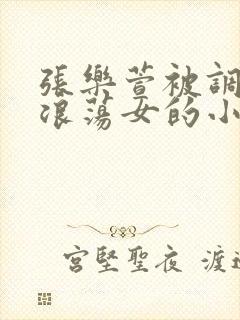 張樂萱被調
浪蕩女的小
宮堅聖夜 渡邊